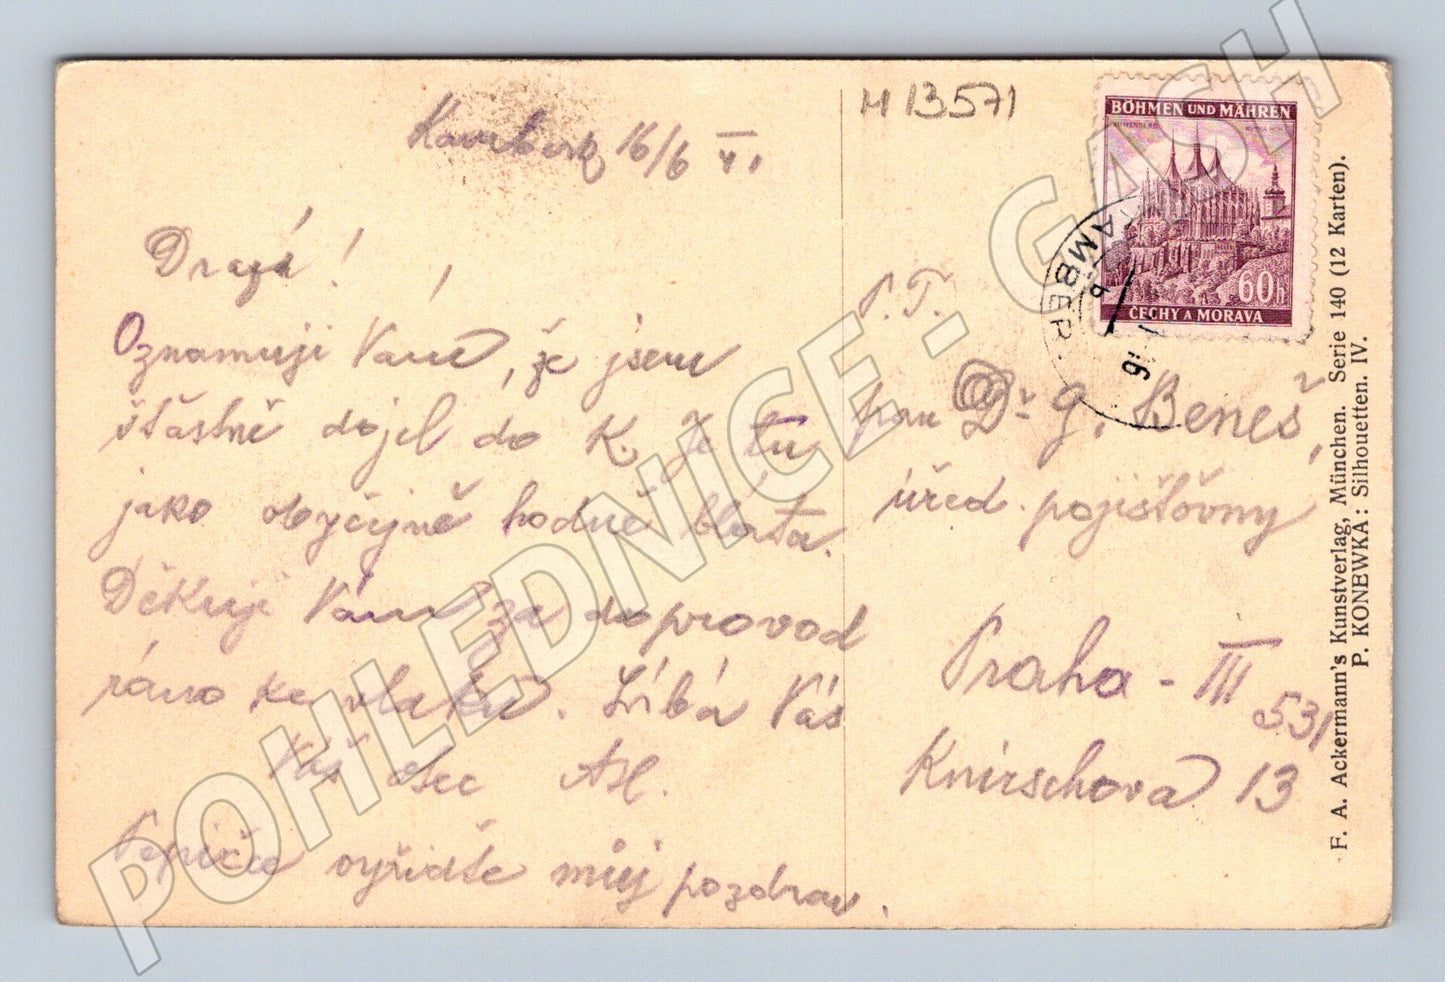 M 13571
Kamberk 16/6 VI.
Drahá!
Oznamuji Vám, že jsem
šťastně dojel do K. Je tu
jako obyčejně hodně bláta.
Děkuji Vám za doprovod
ráno ke vlaku. Líbá Vás
Váš otec
Pepičce vyřidte můj pozdrav.
P. T.
pan Dr. G. Beneš,
úřed. pojišťovny
Praha - III
531
Knirschova 13
BÖHMEN UND MÄHREN
60h
ČECHY A MORAVA
KAMBER
F. A. Ackermann's Kunstverlag, München. Serie 140 (12 Karten).
P. KONEWKA: Silhouetten. IV.
POHLEDNICE - GASH